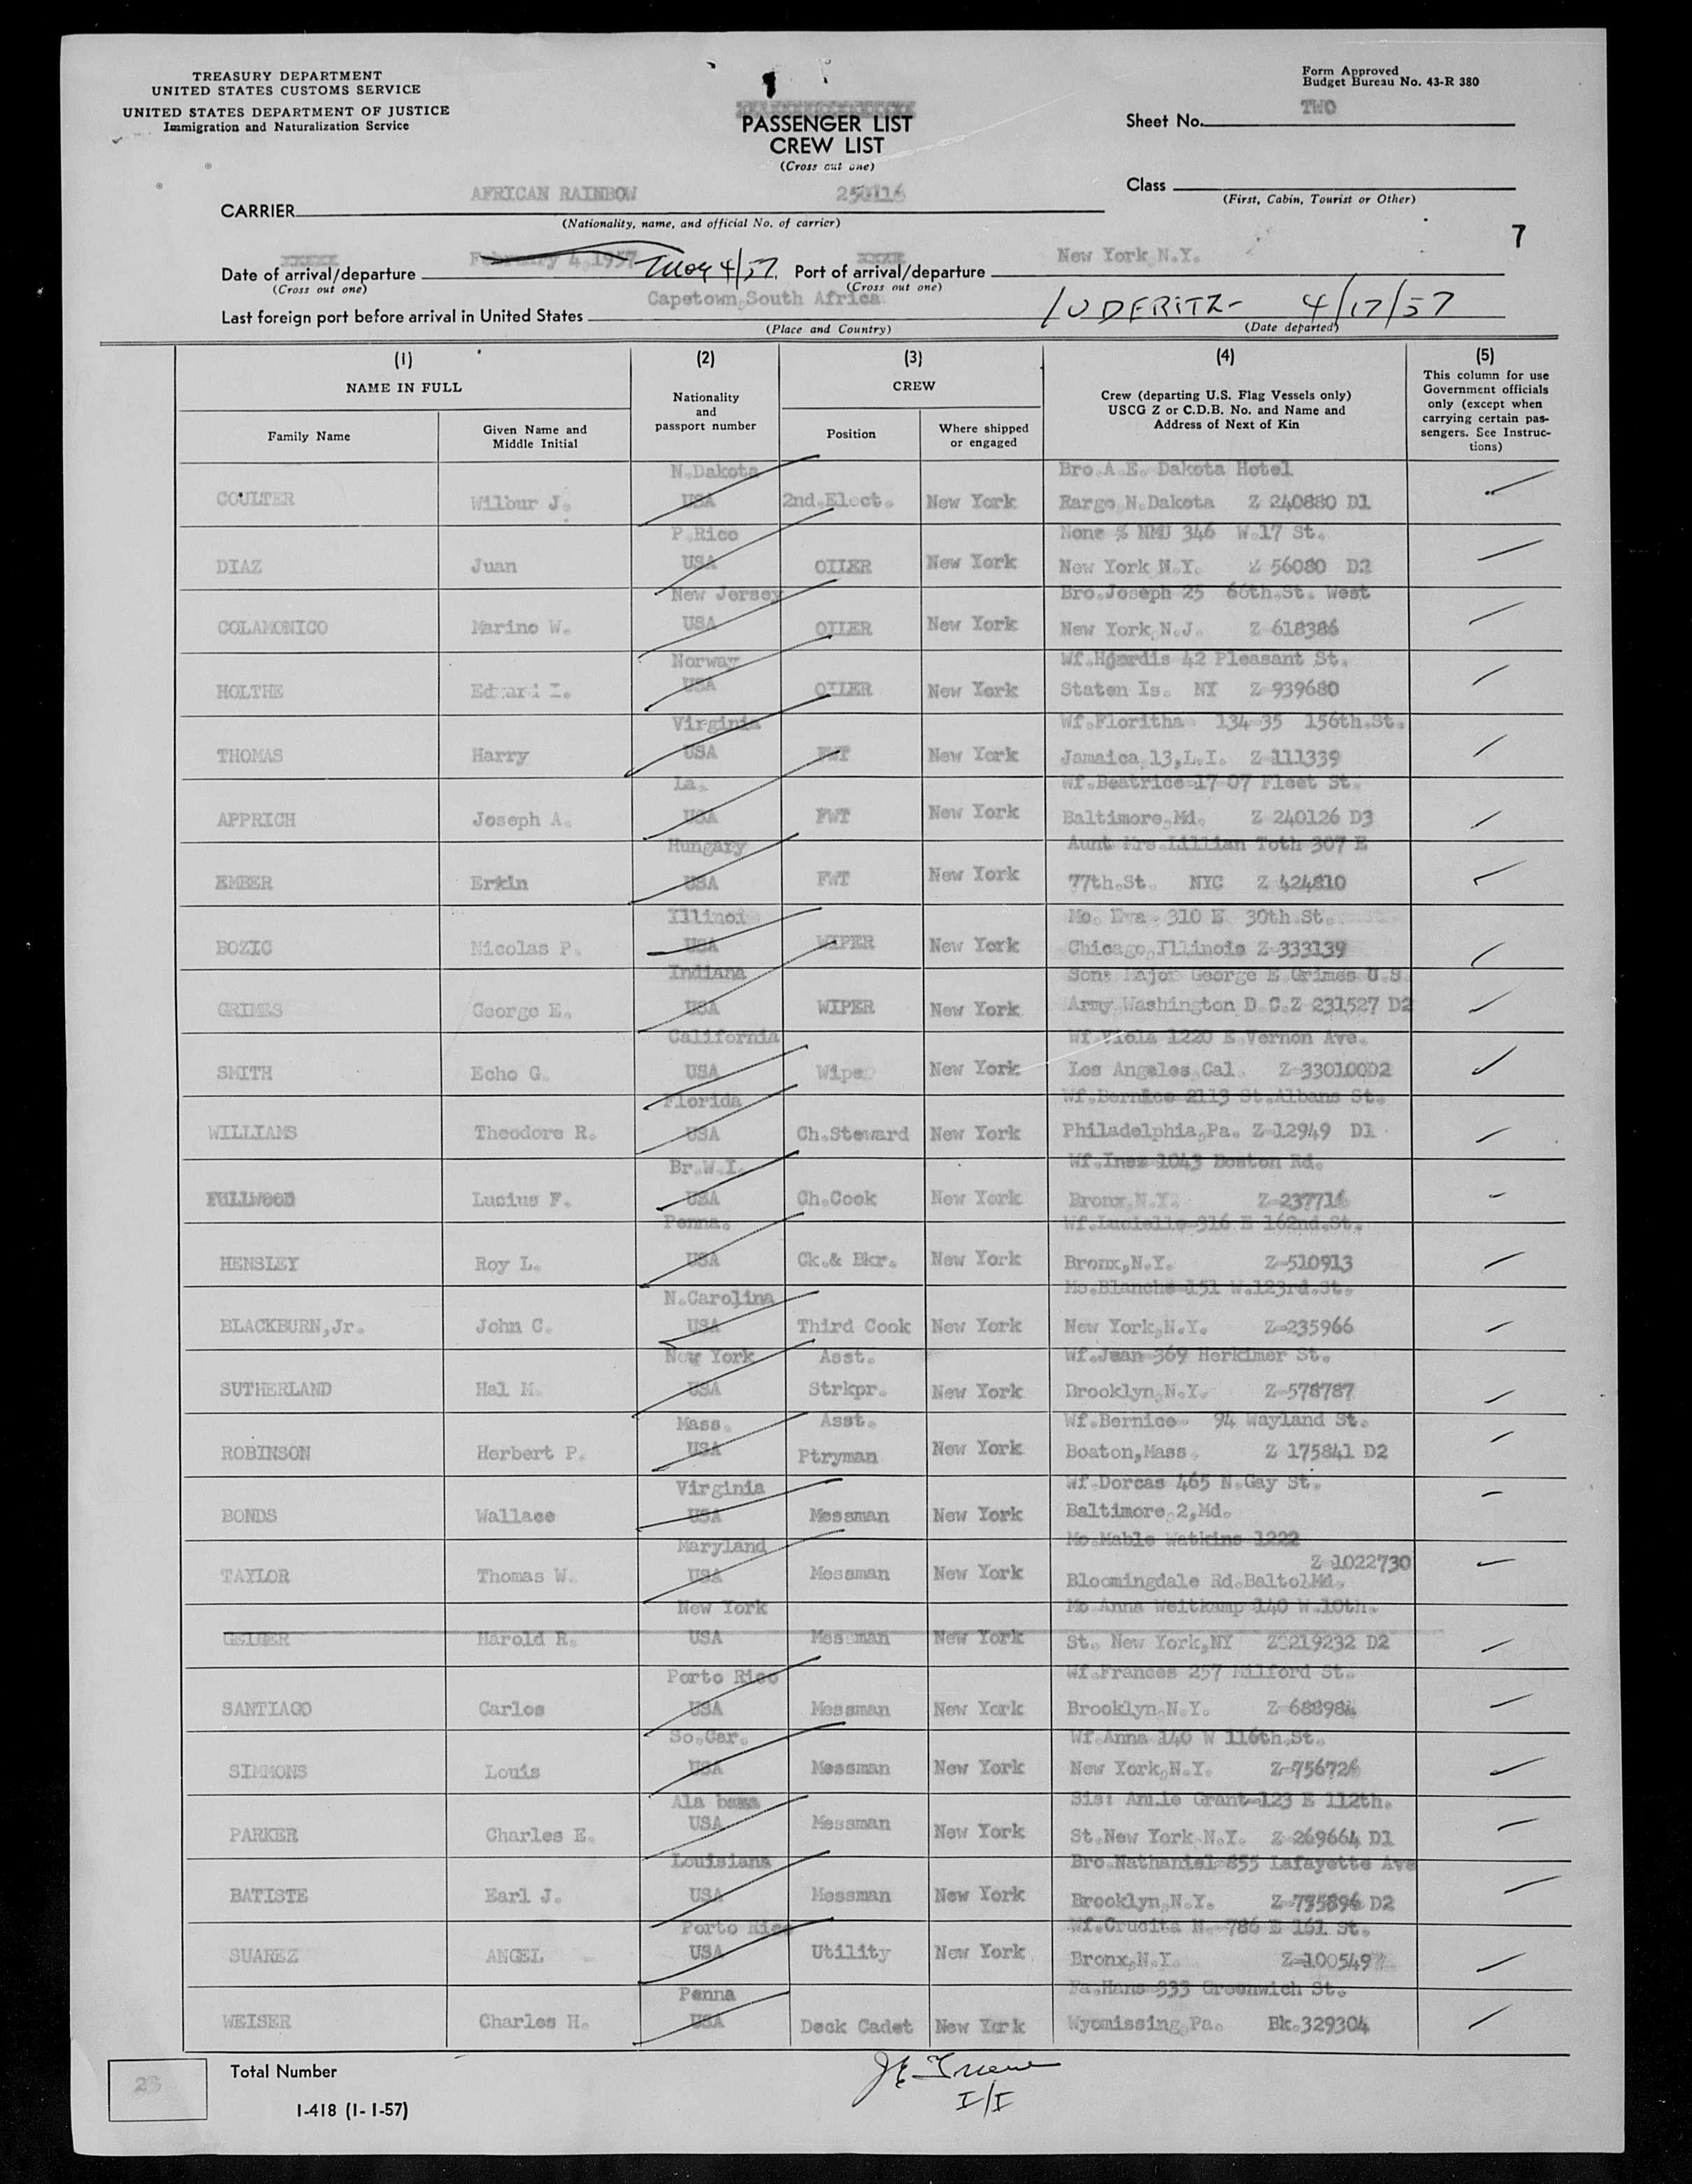 TREASURY DEPARTMENT
UNITED STATES CUSTOMS SERVICE
UNITED STATES DEPARTMENT OF JUSTICE
Immigration and Naturalization Service
Form Approved
Budget Bureau No. 43-R 380
PASSENGER LIST
CREW LIST
(Cross out one)
Sheet No. TWO
Class
(First, Cabin, Tourist or Other)
CARRIER AFRICAN RAINBOW 250116
(Nationality, name, and official No. of carrier)
7
Date of arrival/departure February 4,1957 May 4/57. Port of arrival/departure New York N.Y.
(Cross out one) (Cross out one)
Last foreign port before arrival in United States Capetown,South Africa LUDERITZ- 4/17/57
(Place and Country) (Date departed)
(1) (2) (3) (4) (5)
NAME IN FULL Nationality and passport number CREW Crew (departing U.S. Flag Vessels only) USCG Z or C.D.B. No. and Name and Address of Next of Kin This column for use Government officials only (except when carrying certain passengers. See Instructions)
Family Name Given Name and Middle Initial Position Where shipped or engaged
N.Dakota Bro.A.E. Dakota Hotel
COULTER Wilbur J. USA 2nd.Elect. New York Rargo,N.Dakota Z 240880 D1
P.Rico None % NMU 346 W.17 St.
DIAZ Juan USA OILER New York New York N.Y. Z 56080 D2
New Jersey Bro.Joseph 25 66th.St. West
COLAMONICO Marino W. USA OILER New York New York,N.J. Z 618386
Norway Wf. 42 Pleasant St.
HOLTHE USA OILER New York Staten Is. NY Z 939680
Virginia Wf.Floritha 134-35 156th.St.
THOMAS Harry USA FWT New York Jamaica 13,L.I. Z 111339
La. Wf.Beatrice 17 07 Fleet St.
APPRICH Joseph A. USA FWT New York Baltimore,Md. Z 240126 D3
Hungary Aunt Mrs Lillian Toth 307 E
EMBER Erkin USA FWT New York 77th.St. NYC Z 424810
Illinois Mo. Eva 310 E 30th.St.
BOZIC Nicolas P. USA WIPER New York Chicago,Illinois Z-333139
Indiana Son: Major George E Grimes U.S
GRIMES George E. USA WIPER New York Army,Washington D.C.Z 231527 D2
California Wf Viola 1220 E Vernon Ave.
SMITH Echo G. USA Wiper New York Los Angeles,Cal. Z-330100D2
Florida Wf.Bernice 2113 St.Albans St.
WILLIAMS Theodore R. USA Ch.Steward New York Philadelphia,Pa. Z-12949 D1
Br.W.I. Wf.Inez 1043 Boston Rd.
FULLWOOD Lucius F. USA Ch.Cook New York Bronx,N.Y. Z-237716
Penna. Wf.Lucielle 316 E 162nd.St.
HENSLEY Roy L. USA Ck.& Bkr. New York Bronx,N.Y. Z-510913
N.Carolina Mo.Blanche 151 W.123rd.St.
BLACKBURN,Jr. John C. USA Third Cook New York New York,N.Y. Z-235966
New York Asst. Wf.Jean 369 Herkimer St.
SUTHERLAND Hal M. USA Strkpr. New York Brooklyn,N.Y. Z-578787
Mass. Asst. Wf.Bernice 94 Wayland St.
ROBINSON Herbert P. USA Ptryman New York Boaton,Mass. Z 175841 D2
Virginia Wf.Dorcas 465 N.Gay St.
BONDS Wallace USA Messman New York Baltimore,2,Md.
Maryland Mo.Mable Watkins 1222
Z 1022730
TAYLOR Thomas W. USA Messman New York Bloomingdale Rd.Balto,Md.
New York Mo Anna Weitkamp 140 W.10th.
Harold R. USA Messman New York St. New York,NY 219232 D2
Porto Rico Wf.Frances 257 Milford St.
SANTIAGO Carlos USA Messman New York Brooklyn,N.Y. Z 688984
So.Car. Wf.Anna 140 W 116th.St.
SIMMONS Louis USA Messman New York New York,N.Y. Z-756726
Ala bama Sis: Grant 123 E 112th.
PARKER Charles E. USA Messman New York St.New York N.Y. Z 269664 D1
Louisiana Bro.Nathaniel 855 Lafayette Ave
BATISTE Earl J. USA Messman New York Brooklyn,N.Y. D2
Porto Rico Wf.Crucita N. 786 E 161 St.
SUAREZ ANGEL USA Utility New York Bronx,N.Y.
Penna Fa.Hans 933 Greenwich St.
WEISER Charles H. USA Deck Cadet New York Wyomissing,Pa. Bk.329304
25 Total Number
I-418 (1-1-57)
I/I